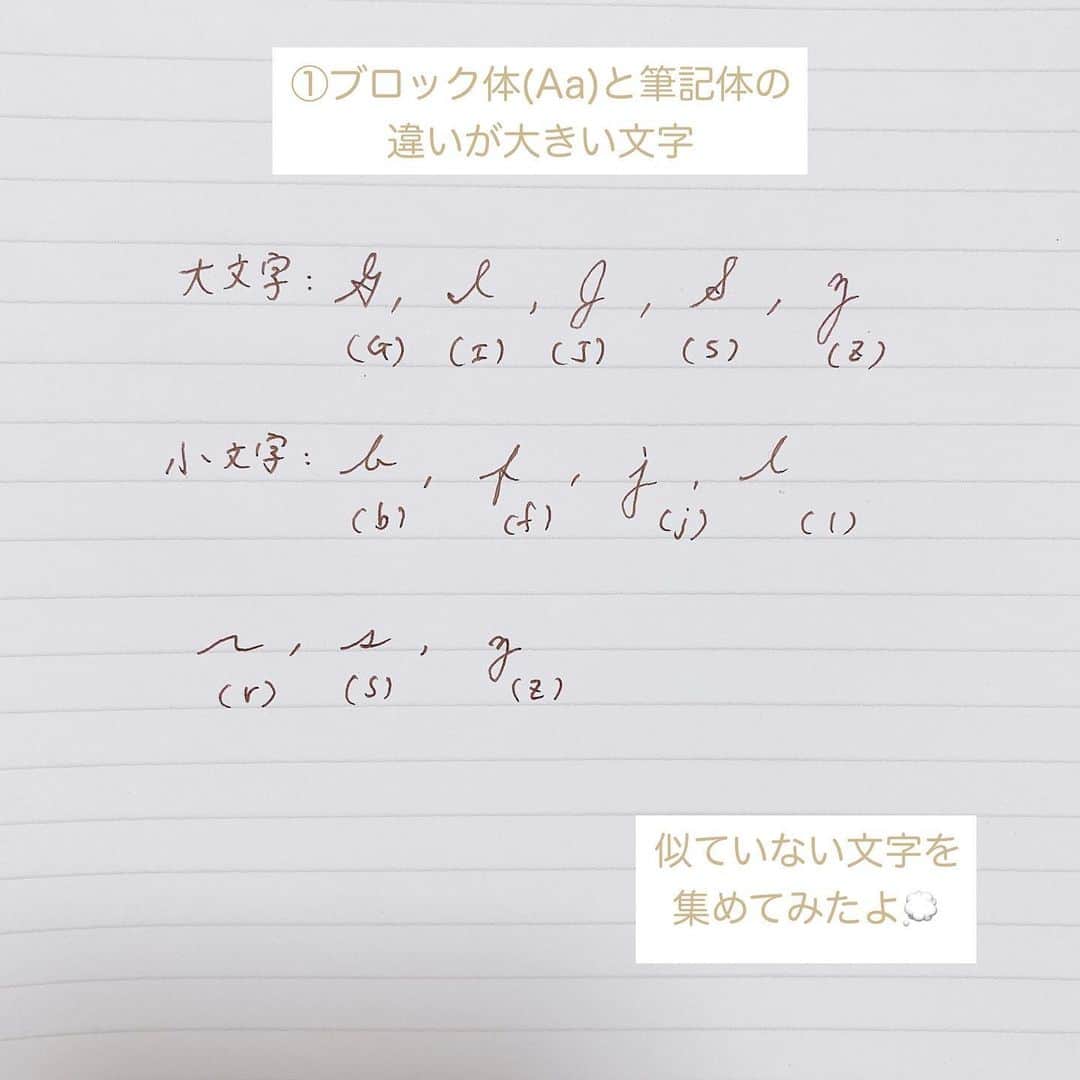 ①ブロック体(Aa)と筆記体の
違いが大きい文字
大文字: G, I, J, S, Z
(G) (I) (J) (S) (Z)
小文字: b, f, j, l
(b) (f) (j) (l)
r, s, z
(r) (s) (z)
似ていない文字を
集めてみたよ💭